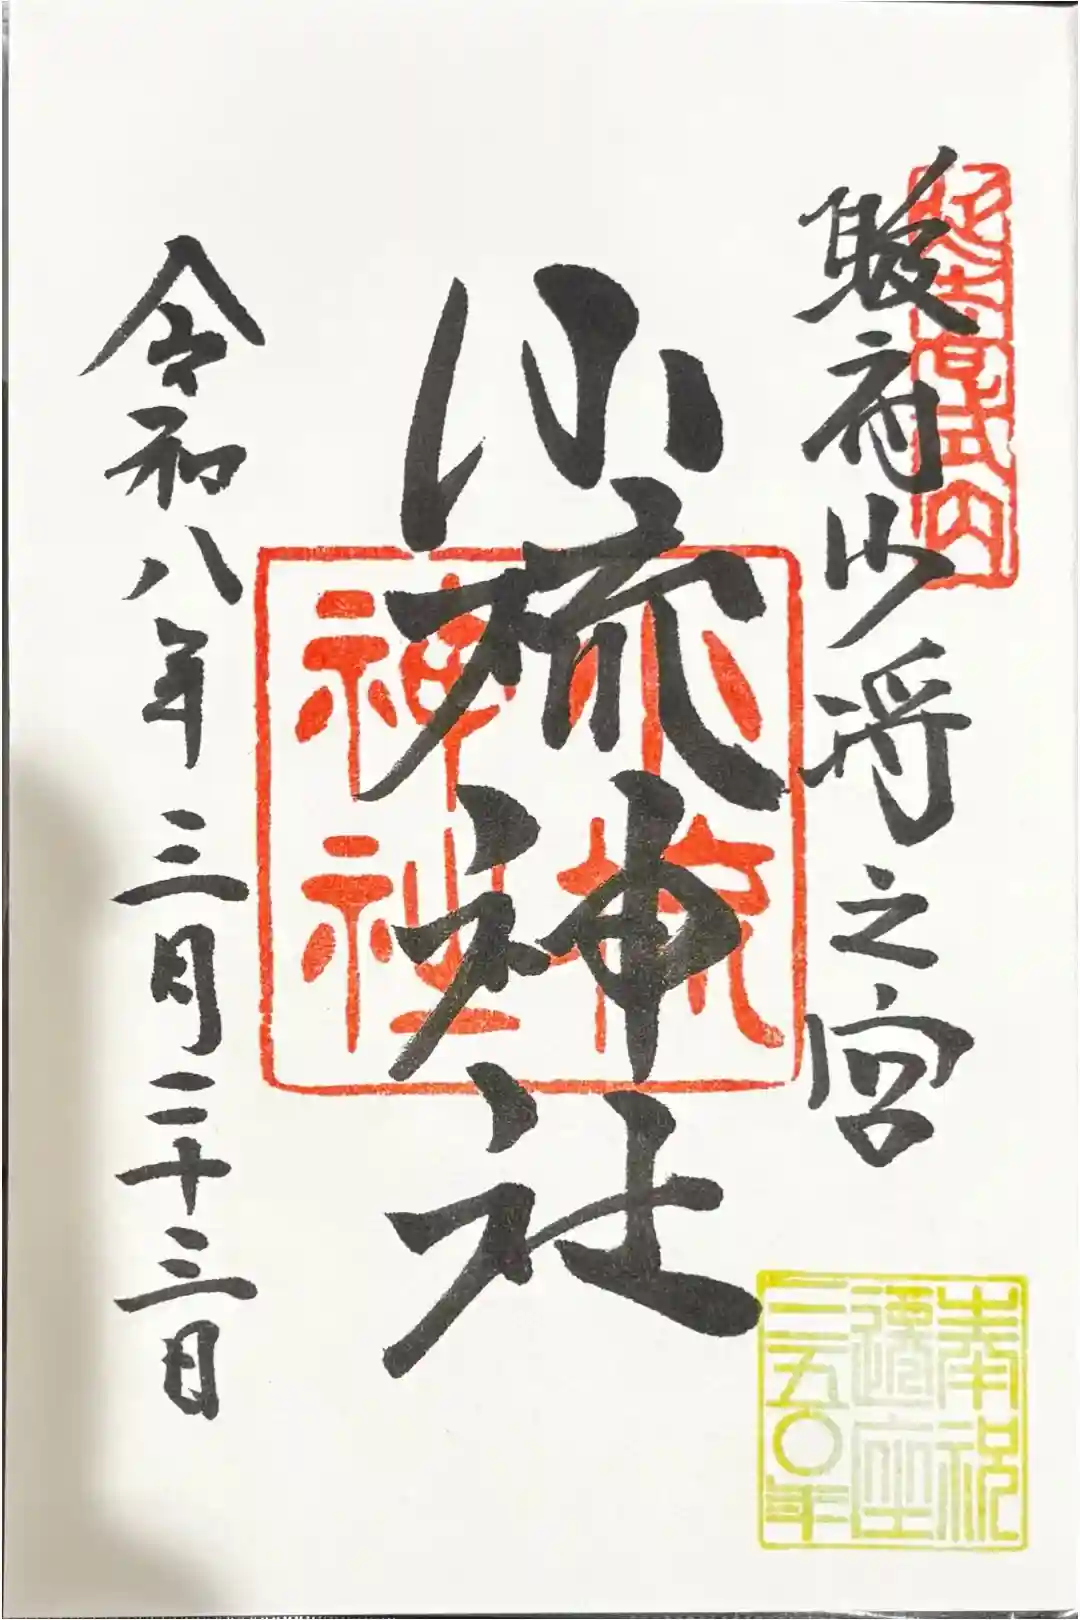 延喜式内
駿府少将之宮
奉祝
遷座
三五〇年
小梳神社
小梳
神社
令和八年 三月二十三日